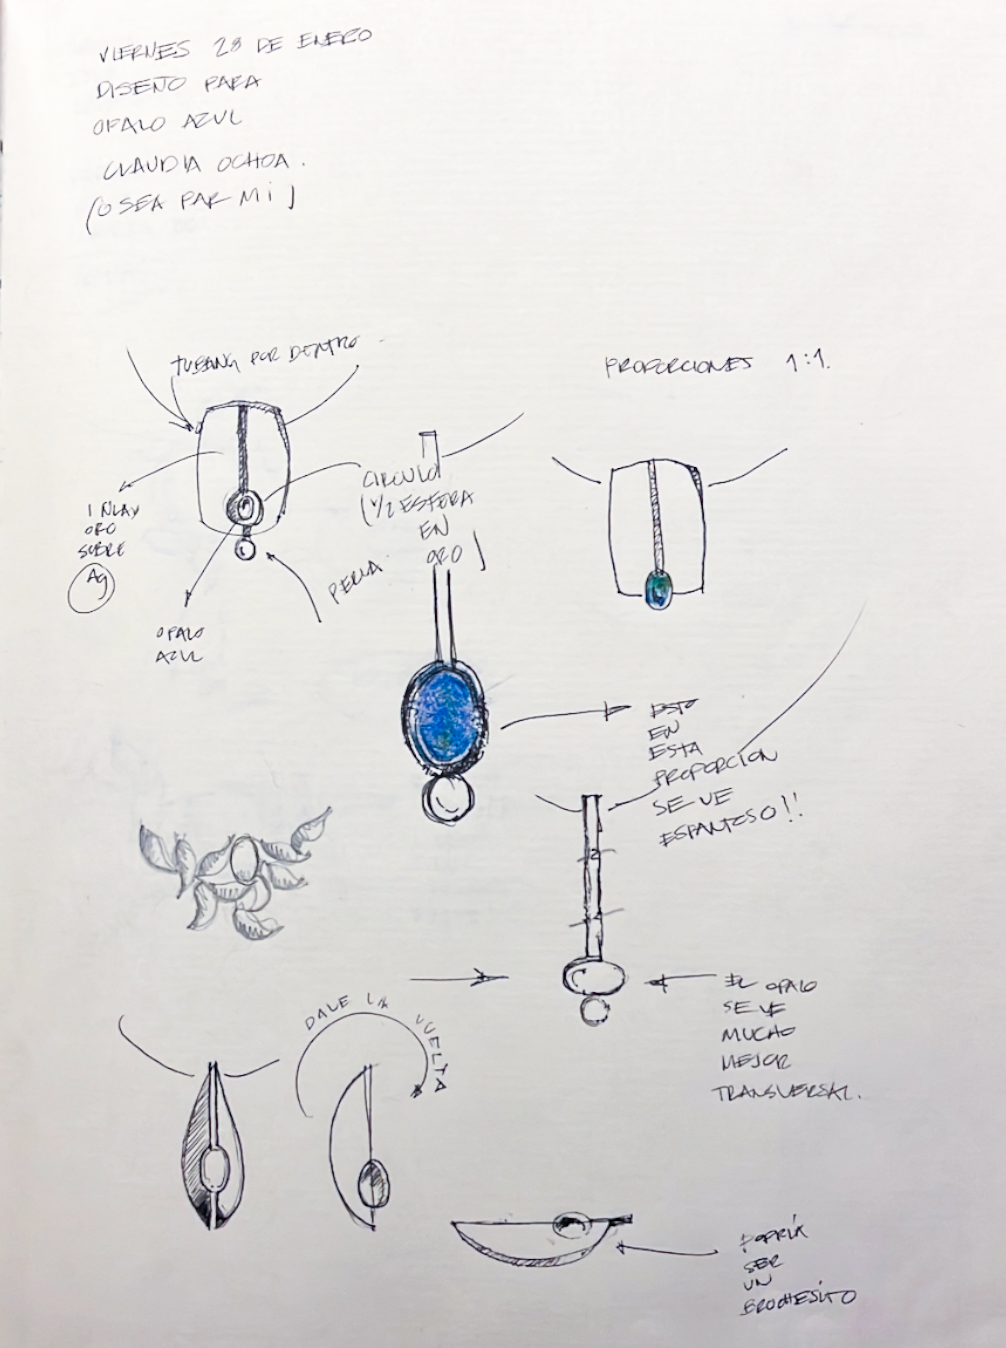 VIERNES 28 DE ENERO
DISEÑO PARA
OPALO AZUL
CLAUDIA OCHOA.
(O SEA PAR MI)
TUBING POR DENTRO
PROPORCIONES 1:1.
CIRCULO
(1/2 ESFERA
EN
ORO)
INLAY
ORO
SOBRE
Ag
PERLA
OPALO
AZUL
ESTO
EN
ESTA
PROPORCION
SE VE
ESPANTOSO!!
EL OPALO
SE VE
MUCHO
MEJOR
TRANSVERSAL.
DALE LA VUELTA
PODRÍA
SER
UN
BROCHESITO